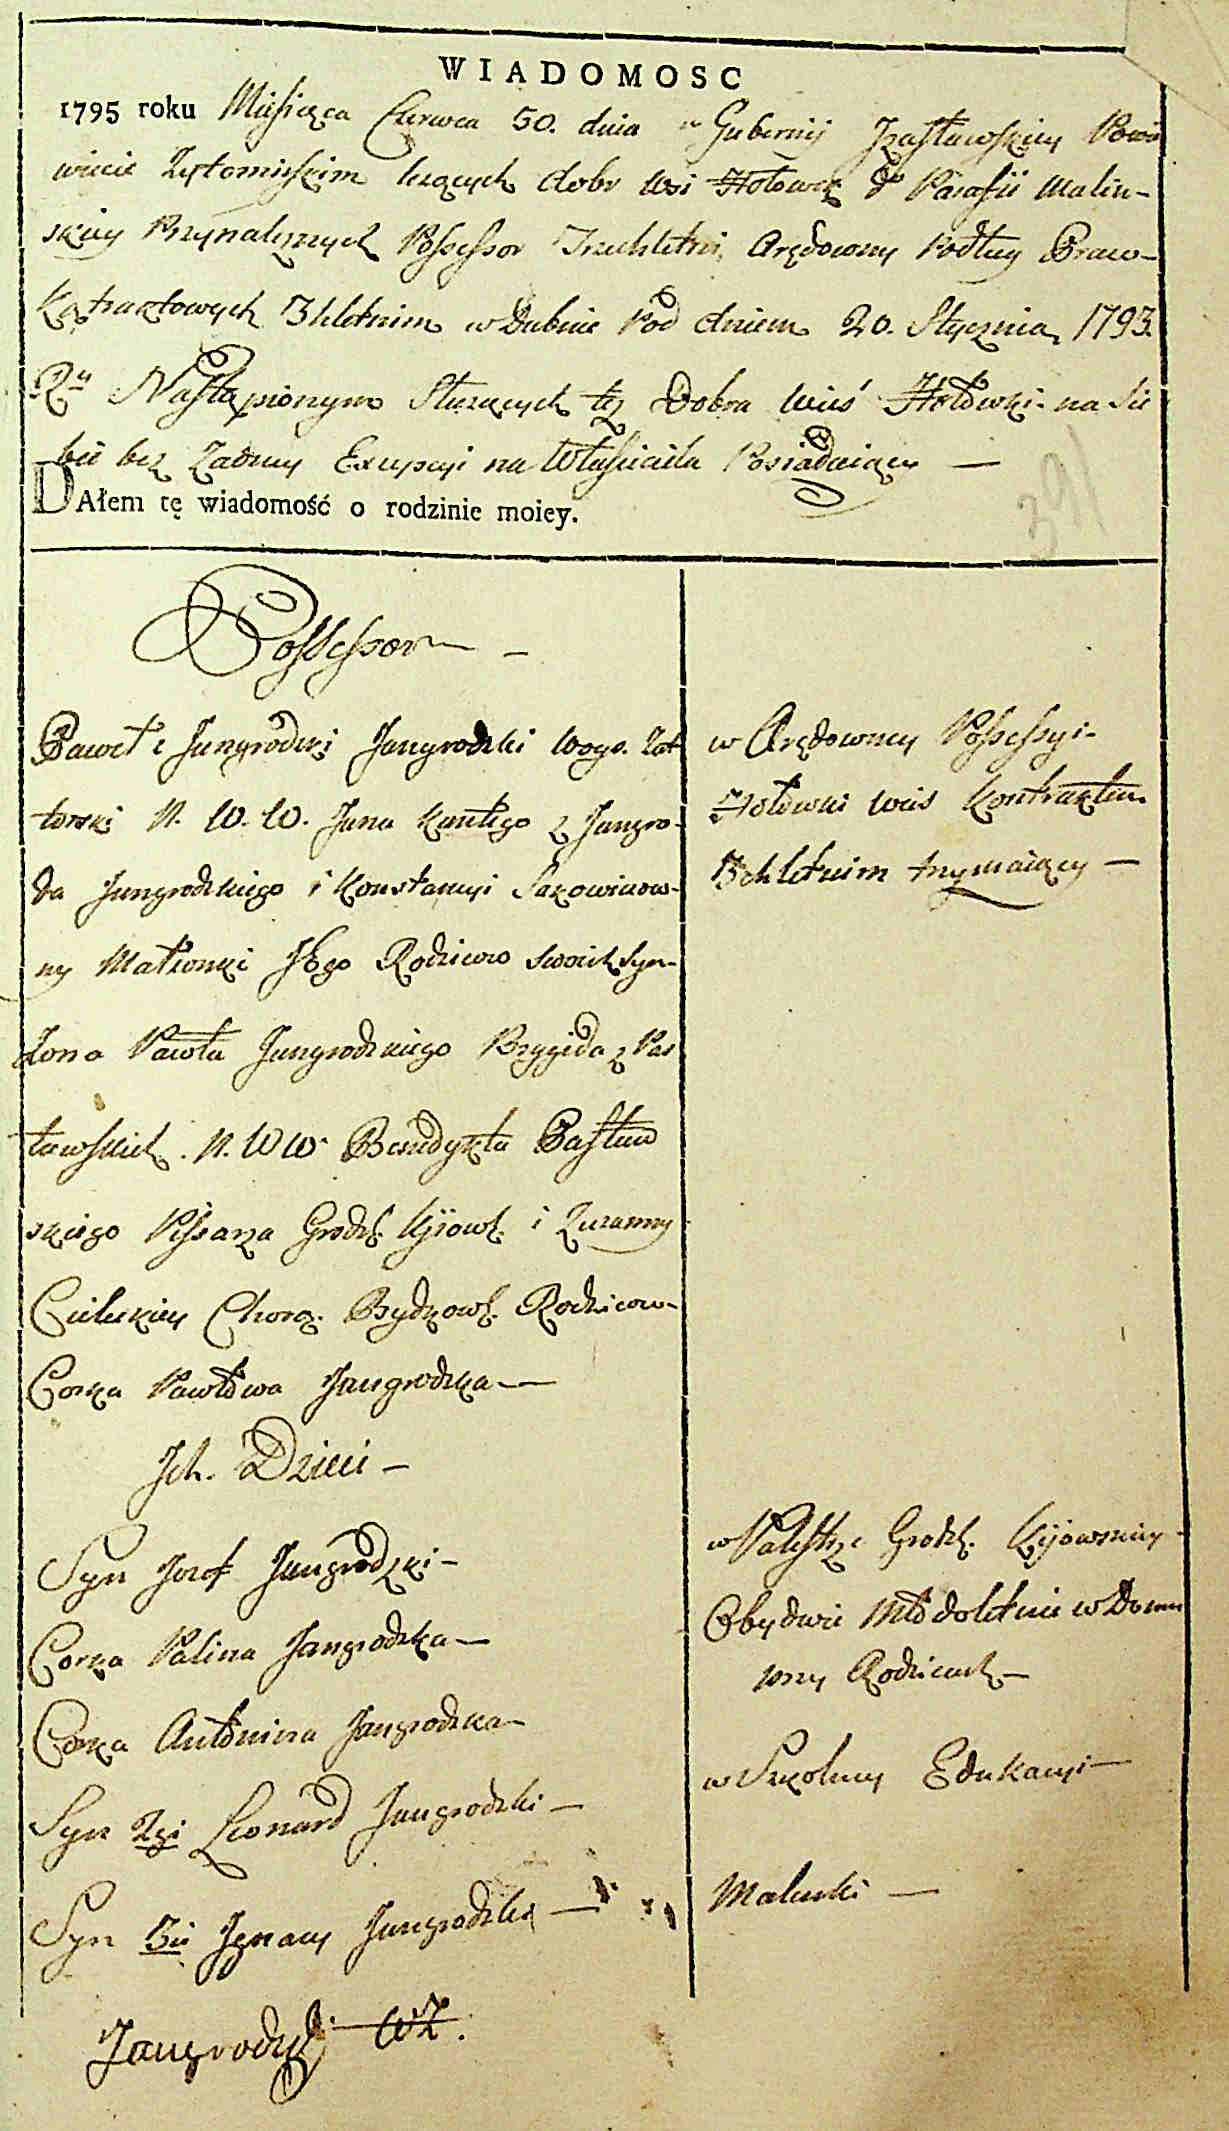 WIADOMOSC
1795 roku Miesięca Czerwca 30. dnia w Gubernij Izasławskiey Powie
wiecie Zytomirskim leżących dobr Wsi Hołowek do Parafii Malin-
skiey Przynależnych Possessor Trzechletni, Arędowny Podług Praw
Kątraktowych 3chletnim w Dubnie Pod dniem 20. Stycznia 1793.
Rku Nastąpionym Służących tęż Dobra Wieś Hołowki na sie
bie bez Zadney Excepcyi na Własciciela Posiadaiący —
DAłem tę wiadomość o rodzinie moiey.
391
Possessor —
Paweł z Jangrodzki Jangrodzki Woys. Zat
torski N. W. W. Jana Kantego z Jangro-
da Jangrodzkiego i Konstancyi Sakowiczow-
ny Małżonki Jego Rodzicow swoich Syn
Żona Pawła Jangrodzkiego Brygida z Pas
tawskich. N. WW. Benedykta Pastaw
skiego Pisarza Grodz. Kijows. i Zuzanny
Cieleckiey Chorąż. Bydgows. Rodzicow
Corka Pawłowa Jangrodzka —
Ich. Dzieci —
Syn Jozef Jangrodzki —
Corka Palina Jangrodzka —
Corka Antonina Jangrodzka —
Syn 2gi Leonard Jangrodzki —
Syn 3ci Ignacy Jangrodzki —
Jangrodzki WZ.
w Arędowney Possessyi
Hołowki wieś Kontraktem
3chletnim trzymaiący —
w Palestrze Grodz. Kijowskiey
Obydwie Młodoletnie w Domu
przy Rodzicach —
w Szkolney Edukacyi —
Maleńki —